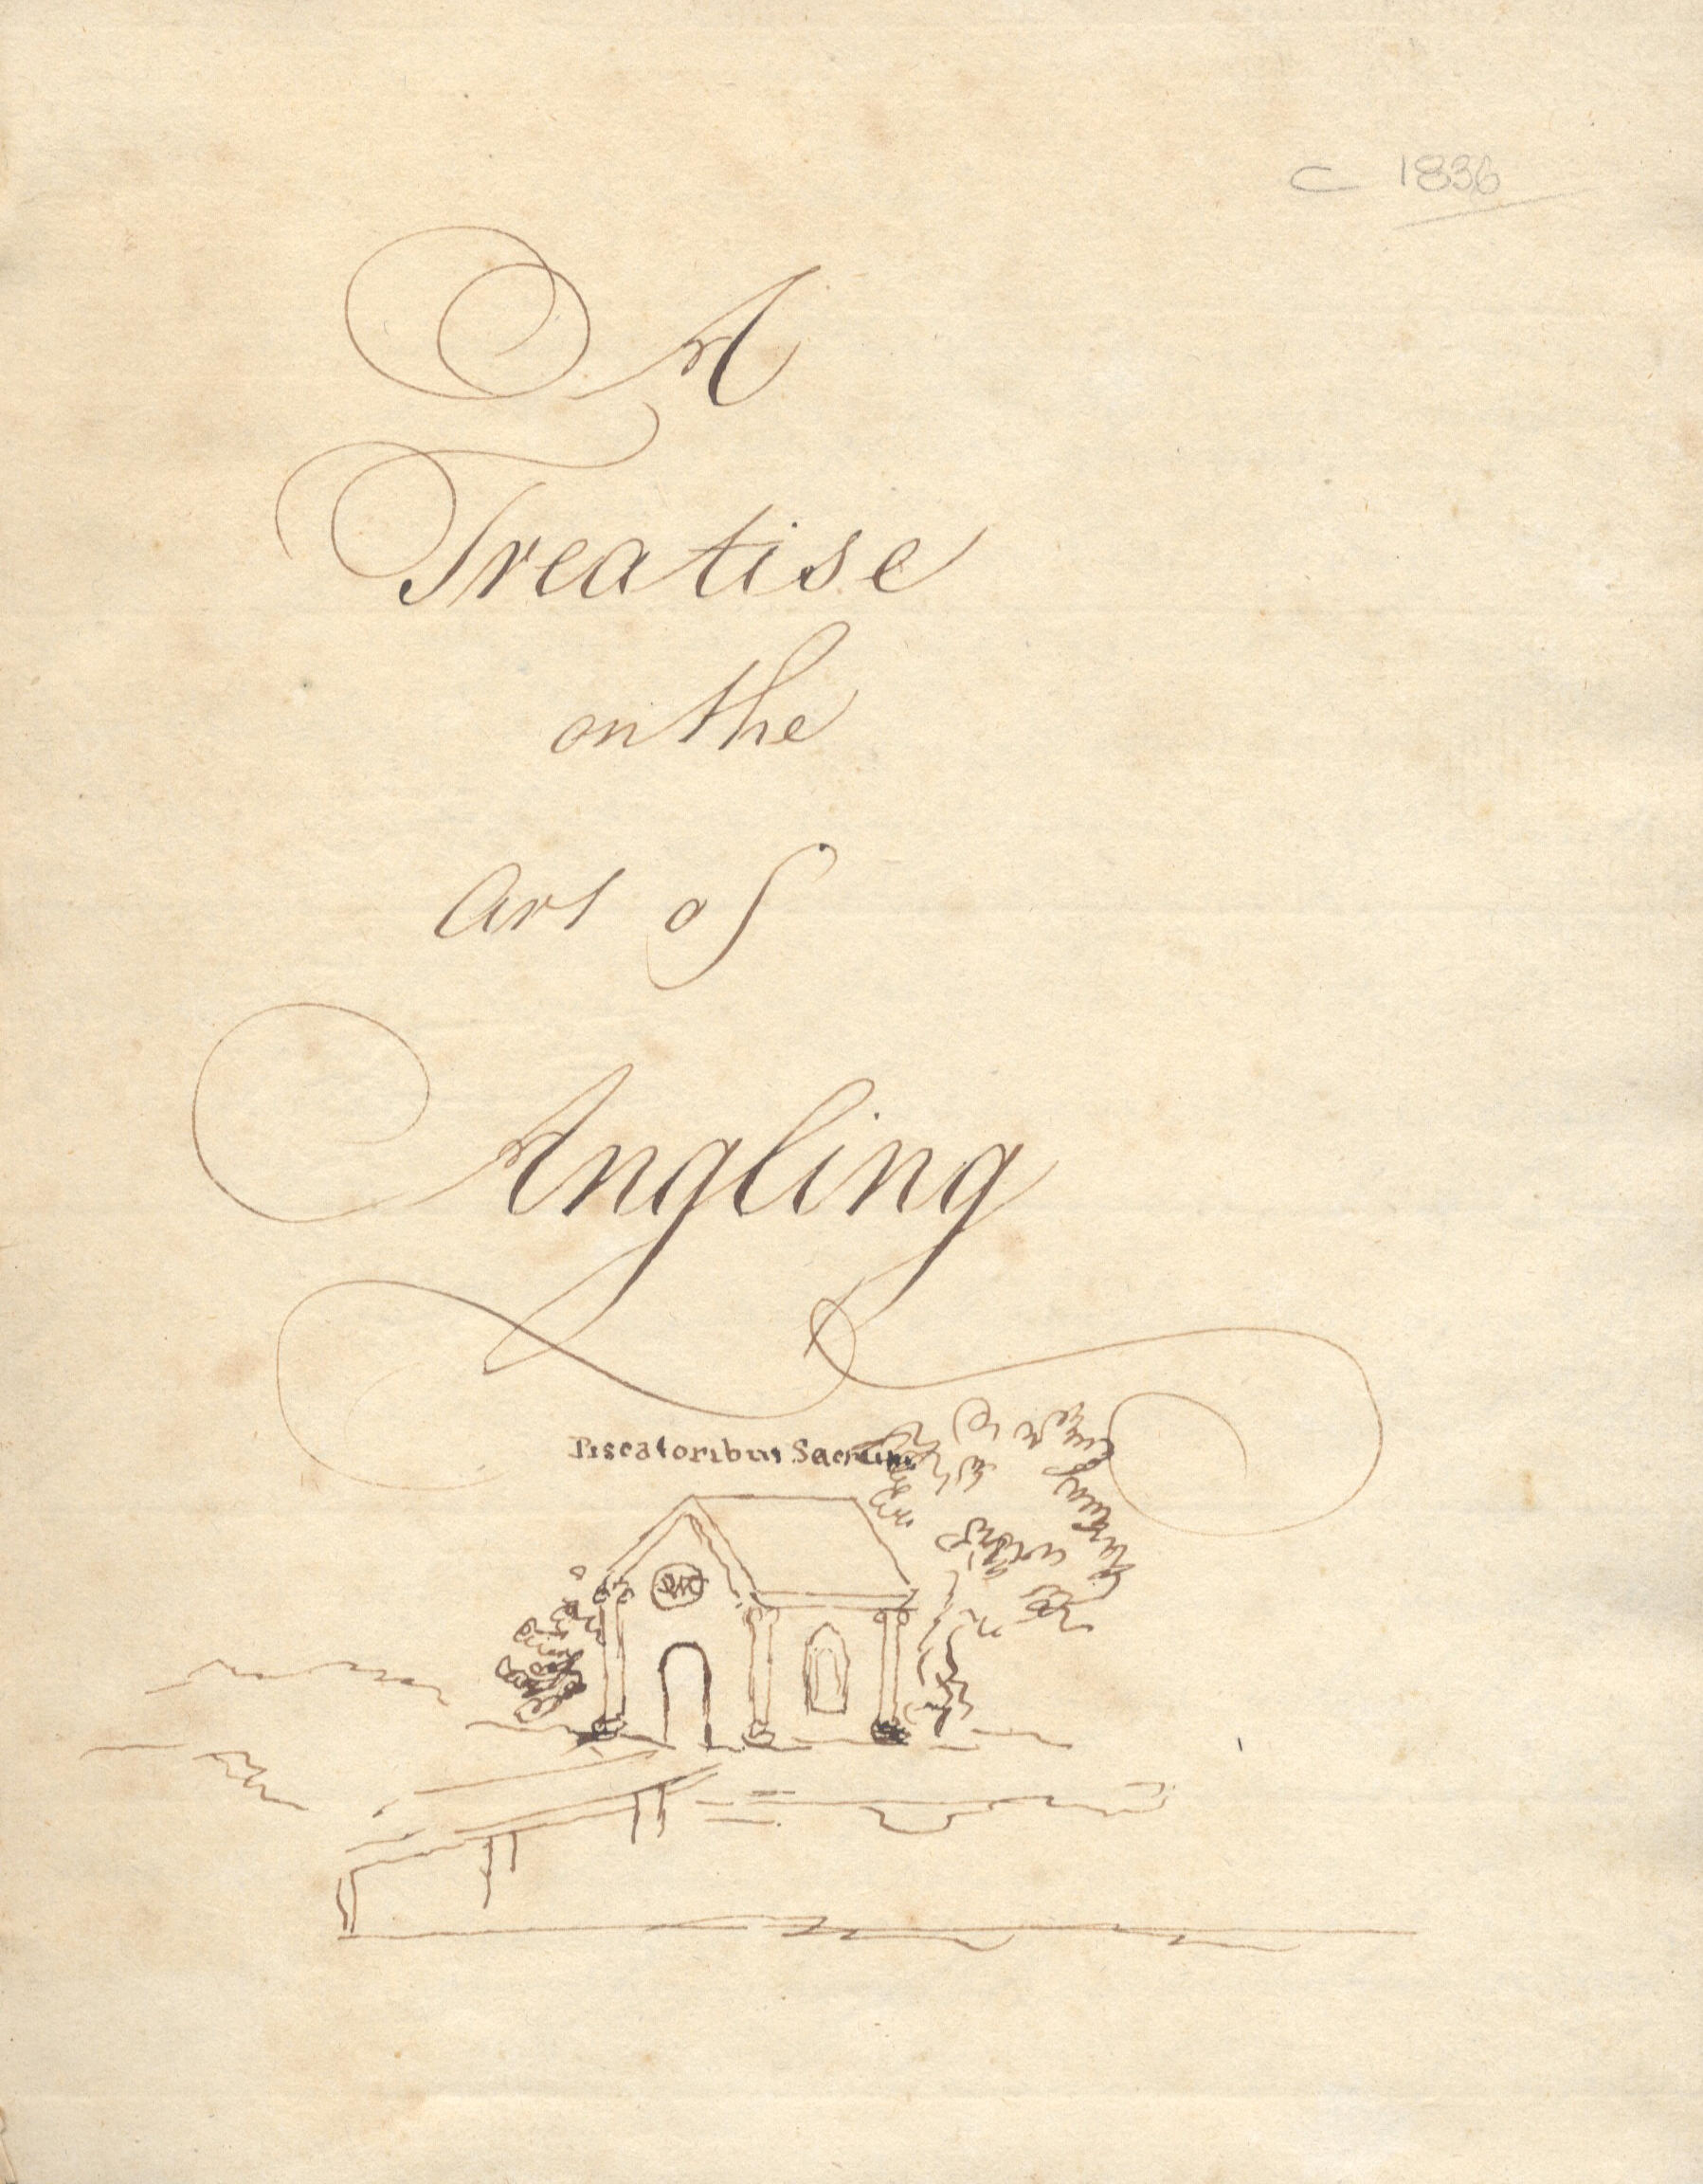 c 1836
A
Treatise
on the
Art of
Angling
Piscatoribus Sacrum